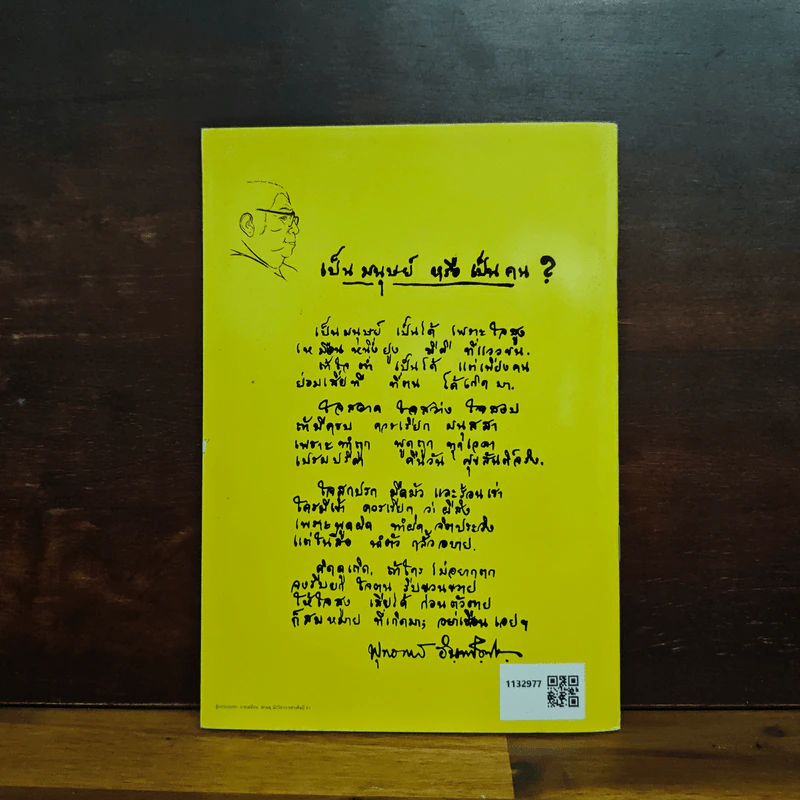 เป็นมนุษย์ หรือ เป็นคน ?
เป็นมนุษย์ เป็นได้ เพราะใจสูง
เหมือนหนึ่งยูง มีดี ที่แววขน.
ถ้าใจต่ำ เป็นได้ แต่เพียงคน
ย่อมเสียที ที่ตน ได้เกิดมา.
ใจสอาด ใจสว่าง ใจสงบ
ถ้ามีครบ ควรเรียก มนุสสา
เพราะทำถูก พูดถูก ทุกเวลา
เปรมปรีดา คืนวัน สุขสันติ์จริง.
ใจสกปรก มืดมัว และร้อนเร่า
ใครมีเข้า ควรเรียก ว่าผีสิง
เพราะพูดผิด ทำผิด จิตประวิง
แต่ในสิ่ง นำตัว กลั้วอบาย.
คิดดูเถิด, ถ้าใคร ไม่อยากตก
จงรีบยก ใจตน รีบขวนขวาย
ให้ใจสูง เสียได้ ก่อนตัวตาย
ก็สมหมาย ที่เกิดมา; อย่าเชือนเอยฯ
พุทธทาส อินทปัญโญ
1132977